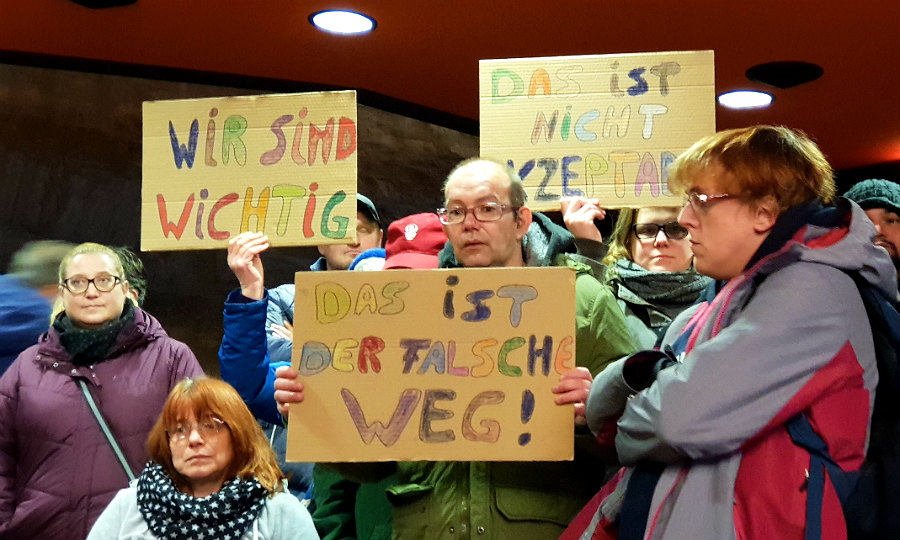 WiR SiND
WiCHTiG
DAS iST
NiCHT
DAS iST
DER FALSCHE
WEG!